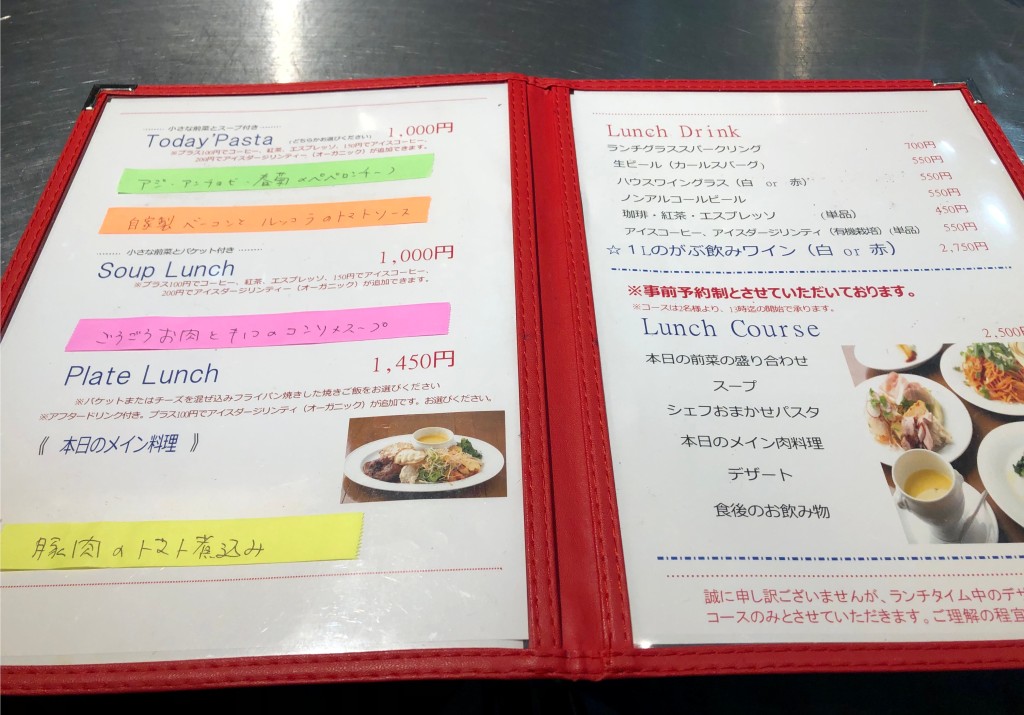 小さな前菜とスープ付き
Today'Pasta (どちらかお選びください) 1,000円
※プラス100円でコーヒー、紅茶、エスプレッソ、150円でアイスコーヒー、
200円でアイスダージリンティー（オーガニック）が追加できます。
アジ・アンチョビ・春菊のペペロンチーノ
自家製 ベーコンと ルッコラのトマトソース
小さな前菜とバケット付き
Soup Lunch 1,000円
※プラス100円でコーヒー、紅茶、エスプレッソ、150円でアイスコーヒー、
200円でアイスダージリンティー（オーガニック）が追加できます。
ごろごろお肉とキノコのコンソメスープ
Plate Lunch 1,450円
※バケットまたはチーズを混ぜ込みフライパン焼きした焼きご飯をお選びください
※アフタードリンク付き。プラス100円でアイスダージリンティ（オーガニック）が追加です。お選びください。
《 本日のメイン料理 》
豚肉のトマト煮込み
Lunch Drink
ランチグラススパークリング 700円
生ビール（カールスバーグ） 550円
ハウスワイングラス（白 or 赤） 550円
ノンアルコールビール 550円
珈琲・紅茶・エスプレッソ （単品） 450円
アイスコーヒー、アイスダージリンティ（有機栽培）（単品） 550円
☆１Lのがぶ飲みワイン（白 or 赤） 2,750円
※事前予約制とさせていただいております。
※コースは2名様より、13時迄の開始で承ります。
Lunch Course 2,500円
本日の前菜の盛り合わせ
スープ
シェフおまかせパスタ
本日のメイン肉料理
デザート
食後のお飲み物
誠に申し訳ございませんが、ランチタイム中のデザ
コースのみとさせていただきます。ご理解の程宜